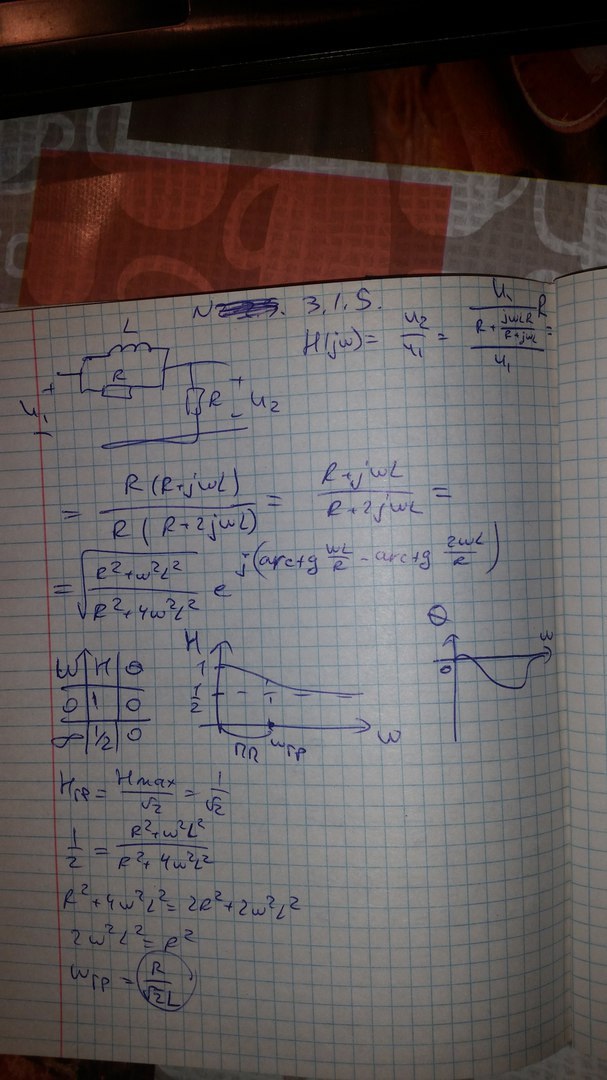 N 3.1.5.
L
R
U₁ + -
R + - U₂
H(jω) = U₂/U₁ = (U₁/(R + jωLR/(R+jωL)) R)/U₁ =
= R(R+jωL)/R(R+2jωL) = (R+jωL)/(R+2jωL) =
= √((R²+ω²L²)/(R²+4ω²L²)) e^j(arctg ωL/R - arctg 2ωL/R)
ω H Θ
0 1 0
∞ 1/2 0
H
1
1/2
ПП ωгр ω
Θ
0 ω
Hгр = Hmax/√2 = 1/√2
1/2 = (R²+ω²L²)/(R²+4ω²L²)
R²+4ω²L² = 2R²+2ω²L²
2ω²L² = R²
ωгр = R/(√2L)